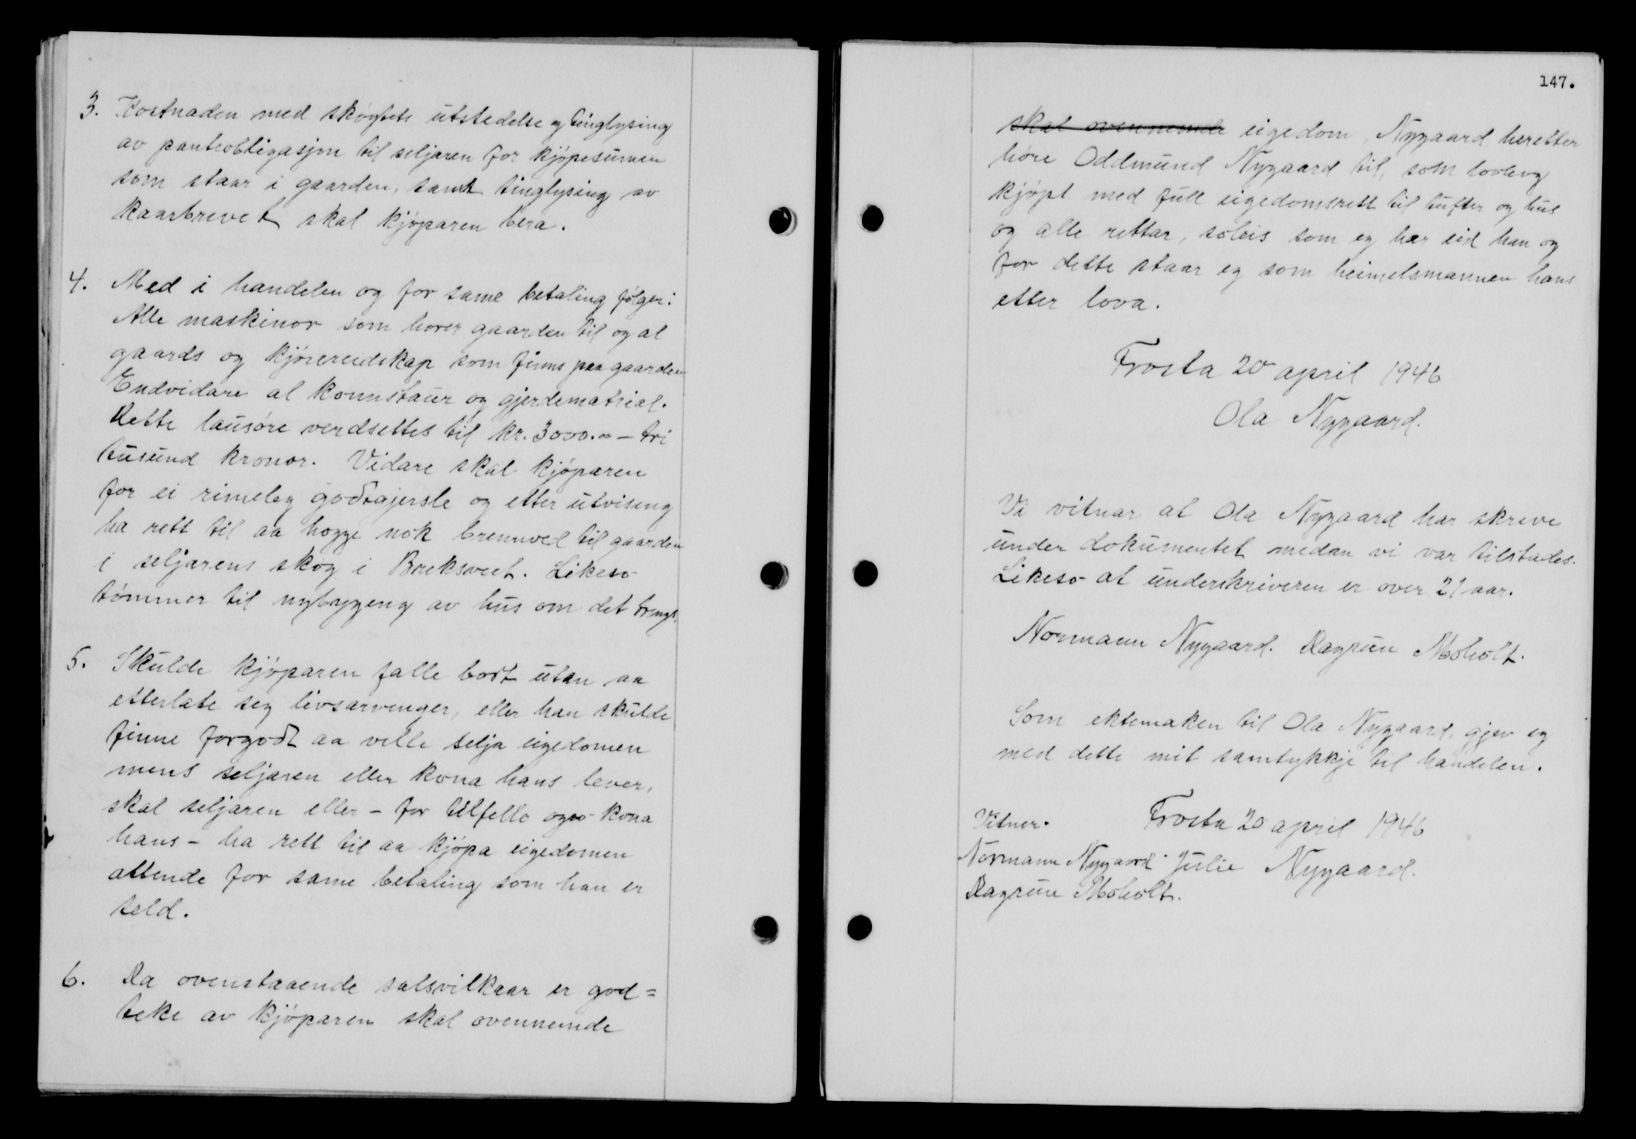 3. Kostnaden med skøytets utstedelse og tinglysing
av panteobligasjon til seljaren for kjøpesumen
som staar i gaarden, samt tinglysing av
kaarbrevet skal kjøparen bera.
4. Med i handelen og for same betaling følger:
Alle maskinor som hører gaarden til og al
gaards og kjørereidskap som finns paa gaarden
Endvidare al konnstaur og gjerdematrial.
Dette lausøre verdsettes til kr. 3000.00 – tri
tusund kronor. Vidare skal kjøparen
for ei rimeleg godtgjersle og etter utvising
ha rett til aa hogge nok brennved til gaarden
i seljarens skog i Breksveet. Likeso
tømmer til nybygging av hus om det trengs.
5. Skulde kjøparen falle bort utan aa
etterlate seg livsarvinger, eller han skulde
finne forgodt aa ville selja eigedomen
mens seljaren eller kona hans lever,
skal seljaren eller – for tilfelle ogso kona
hans – ha rett til aa kjøpa eigedomen
attende for same betaling som han er
seld.
6. Da ovenstaaende salsvilkaar er god=
teke av kjøparen skal ovennemde
147.
skal ovennemde eigedom, Nygaard heretter
høre Oddmund Nygaard til, som lovleg
kjøpt med full eigedomsrett til tufter og hus
og alle rettar, soleis som eg har eid han og
for dette staar eg som heimelsmannen hans
etter lova.
Frosta 20 april 1946
Ola Nygaard.
Vi vitnar at Ola Nygaard har skreve
under dokumentet medan vi var tilstades.
Likeso at underskriveren er over 21 aar.
Normann Nygaard. Dagrun Moholt.
Som ektemaken til Ola Nygaard, gjev eg
med dette mit samtykkje til handelen.
Vitner. Frosta 20 april 1946
Normann Nygaard. Julie Nygaard.
Dagrun Moholt.